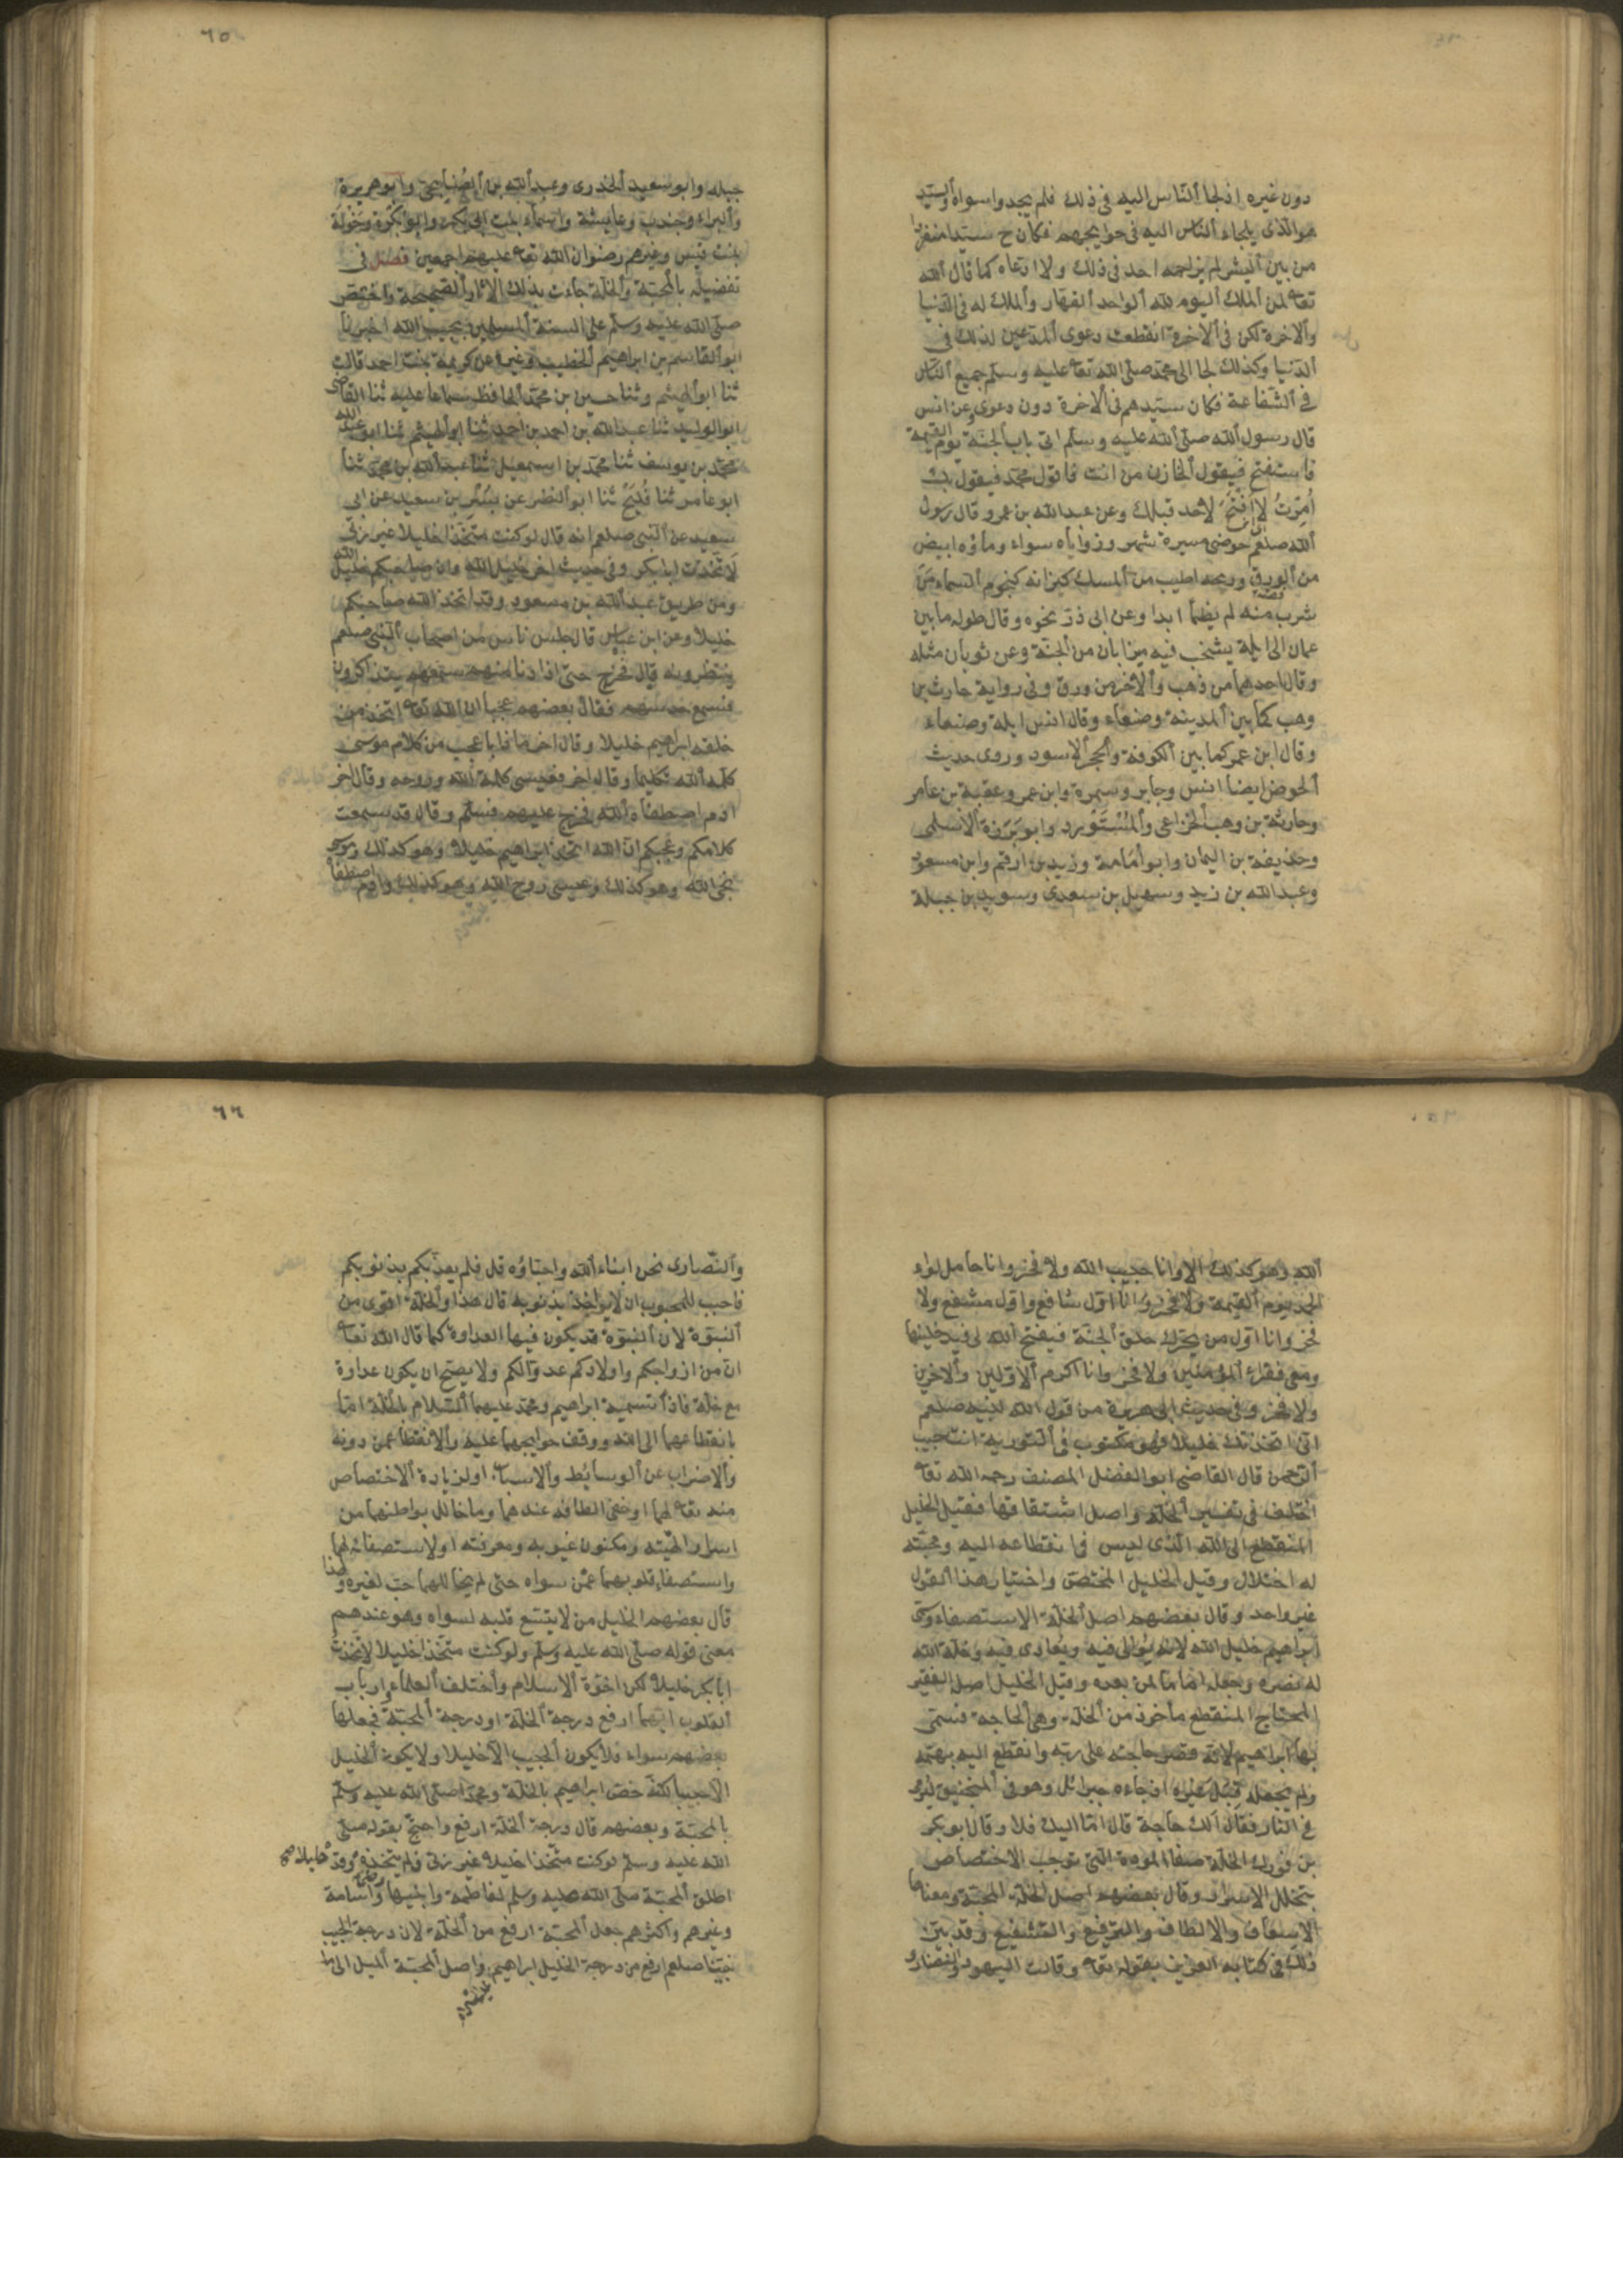 دون غيره اذ لجأ الناس اليه فى ذلك فلم يجدوا سواه والسيد
هو الذى يلجاء الناس اليه فى حوايجهم فكان ح سيدا منفردا
من بين البشر لم يزاحمه احد فى ذلك ولا ادعاه كما قال الله
تعا لمن الملك اليوم لله الواحد القهار والملك له فى الدنيا
والاخرة لكن فى الاخرة انقطعت دعوى المدعين لذلك فى
الدنيا وكذلك لجا الى محمد صلى الله تعا عليه وسلم جميع الناس
فى الشفاعة فكان سيدهم فى الاخرة دون دعوى وعن انس
قال رسول الله صلى الله عليه وسلم اتى باب الجنة يوم القيمة
فاستفتح فيقول الخازن من انت فاقول محمد فيقول بك
امرت لا افتح لاحد قبلك وعن عبد الله بن عمرو قال رسول
الله صلعم حوضى مسيرة شهر وزواياه سواء وماؤه ابيض
من الورق وريحه اطيب من المسك كيزانه كنجوم السماء من
شرب منه لم يظمأ ابدا وعن ابى ذر نحوه وقال طوله ما بين
عمان الى ايلة يشخب فيه ميزابان من الجنة وعن ثوبان مثله
وقال احدهما من ذهب والاخر من ورق وفى رواية حارثة بن
وهب كما بين المدينة وصنعاء وقال انس ايلة وصنعاء
وقال ابن عمر كما بين الكوفة والحجر الاسود وروى حديث
الحوض ايضا انس وجابر وسمرة وابن عمر وعقبة بن عامر
وحارثة بن وهب الخزاعى والمستورد وابو برزة الاسلمى
وحذيفة بن اليمان وابو امامة وزيد بن ارقم وابن مسعود
وعبد الله بن زيد وسهيل بن سعدى وسويد بن جبلة
٦٥
جبله وابو سعيد الخدرى وعبد الله بن الصنابحى وابو هريرة
والبراء وجندب وعايشة واسماء بنت ابى بكر وابو بكرة وخولة
بنت قيس وغيرهم رضوان الله تعا عليهم اجمعين فصل فى
تفضيله بالمحبة والخلة جاءت بذلك الاثار الصحيحة واختص
صلى الله عليه وسلم على السنة المسلمين بحبيب الله اخبرنا
ابو القاسم بن ابراهيم الخطيب وغيره عن كريمة بنت احمد قالت
ثنا ابو الهيثم وثنا حسين بن محمد الحافظ سماعا عليه ثنا القاضى
ابو الوليد ثنا عبد الله بن احمد بن احمد ثنا ابو الهيثم ثنا ابو عبد الله
محمد بن يوسف ثنا محمد بن اسمعيل ثنا عبد الله بن محمد ثنا
ابو عامر ثنا فليح ثنا ابو النضر عن بسر بن سعيد عن ابى
سعيد عن النبى صلعم انه قال لو كنت متخذا خليلا غير ربى
لاتخذت ابا بكر وفى حديث اخر خليل الله وان صاحبكم خليل الله
ومن طريق عبد الله بن مسعود وقد اتخذ الله صاحبكم
خليلا وعن ابن عباس قال جلس ناس من اصحاب النبى صلعم
ينتظرونه قال فخرج حتى اذا دنا منهم سمعهم يتذاكرون
فسمع حديثهم فقال بعضهم عجبا ان الله تعا اتخذ من
خلقه ابراهيم خليلا وقال اخر ماذا باعجب من كلام موسى
كلمه الله تكليما وقال اخر فعيسى كلمة الله وروحه وقال اخر
ادم اصطفاه الله فخرج عليهم فسلم وقال قد سمعت
كلامكم وعجبكم ان الله اتخذ ابراهيم خليلا وهو كذلك وموسى
نجى الله وهو كذلك وعيسى روح الله وهو كذلك وادم اصطفاه
الله وهو كذلك الا وانا حبيب الله ولا فخر وانا حامل لواء
الحمد يوم القيمة ولا فخر وانا اول شافع واول مشفع ولا
فخر وانا اول من يحرك حلق الجنة فيفتح الله لى فيدخلنيها
ومعى فقراء المؤمنين ولا فخر وانا اكرم الاولين والاخرين
ولا فخر وفى حديث ابى هريرة من قول الله لنبيه صلعم
انى اتخذتك خليلا فهو مكتوب فى التورية انت حبيب
الرحمن قال القاضى ابو الفضل المصنف رحمه الله تعا
اختلف فى تفسير الخلة واصل اشتقاقها فقيل الخليل
المنقطع الى الله الذى ليس فى انقطاعه اليه ومحبته
له اختلال وقيل الخليل المختص واختيار هذا القول
غير واحد وقال بعضهم اصل الخلة الاستصفاء وسمى
ابراهيم خليل الله لانه يوالى فيه ويعادى فيه وخلة الله
له نصره وجعله اماما لمن بعده وقيل الخليل اصله الفقير
المحتاج المنقطع مأخوذ من الخلة وهى الحاجة فسمى
بها ابراهيم لانه قصر حاجته على ربه وانقطع اليه بهمه
ولم يجعله قبل غيره اذ جاءه جبرائل وهو فى المنجنيق ليرمى
فى النار فقال الك حاجة قال اما اليك فلا وقال ابو بكر
بن فورك الخلة صفاء المودة التى توجب الاختصاص
بتخلل الاسرار وقال بعضهم اصل الخلة المحبة ومعناها
الاسعاف والالطاف والترفيع والتشفيع وقد بين
ذلك فى كتابه العزيز بقوله تعا وقالت اليهود والنصارى
٦٦
والنصارى نحن ابناء الله واحباؤه قل فلم يعذبكم بذنوبكم
فاحب للمحبوب ان لا يؤاخذ بذنوبه قال هذا والخلة اقوى من
النبوة لان النبوة قد يكون فيها العداوة كما قال الله تعا
ان من ازواجكم واولادكم عدوا لكم ولا يصح ان يكون عداوة
مع خلة فاذا تسمية ابراهيم ومحمد عليهما السلام بالخلة اما
بانقطاعهما الى الله ووقف حوايجهما عليه والانقطاع عمن دونه
والاضراب عن الوسائط والاسباب او لزيادة الاختصاص
منه تعا لهما وخفى الطافه عندهما وما خالل بواطنهما من
اسرار الهيته ومكنون غيوبه ومعرفته او لاستصفائه لهما
واستصفاء قلوبهما عمن سواه حتى لم يخاللهما حب لغيره ولهذا
قال بعضهم الخليل من لا يتسع قلبه لسواه وهو عندهم
معنى قوله صلى الله عليه وسلم ولو كنت متخذا خليلا لاتخذت
ابا بكر خليلا لكن اخوة الاسلام واختلف العلماء وارباب
القلوب ايهما ارفع درجة الخلة او درجة المحبة فجعلها
بعضهم سواء فلا يكون الحبيب الا خليلا ولا يكون الخليل
الا حبيبا لكنه خص ابراهيم بالخلة ومحمدا صلى الله عليه وسلم
بالمحبة وبعضهم قال درجة الخلة ارفع واحتج بقوله صلى
الله عليه وسلم لو كنت متخذا خليلا غير ربى فلم يتخذه وقد
اطلق المحبة صلى الله عليه وسلم لفاطمة وابنيها واسامة
وغيرهم واكثرهم جعل المحبة ارفع من الخلة لان درجة الحبيب
نبينا صلعم ارفع من درجة الخليل ابراهيم واصل المحبة الميل الى ما